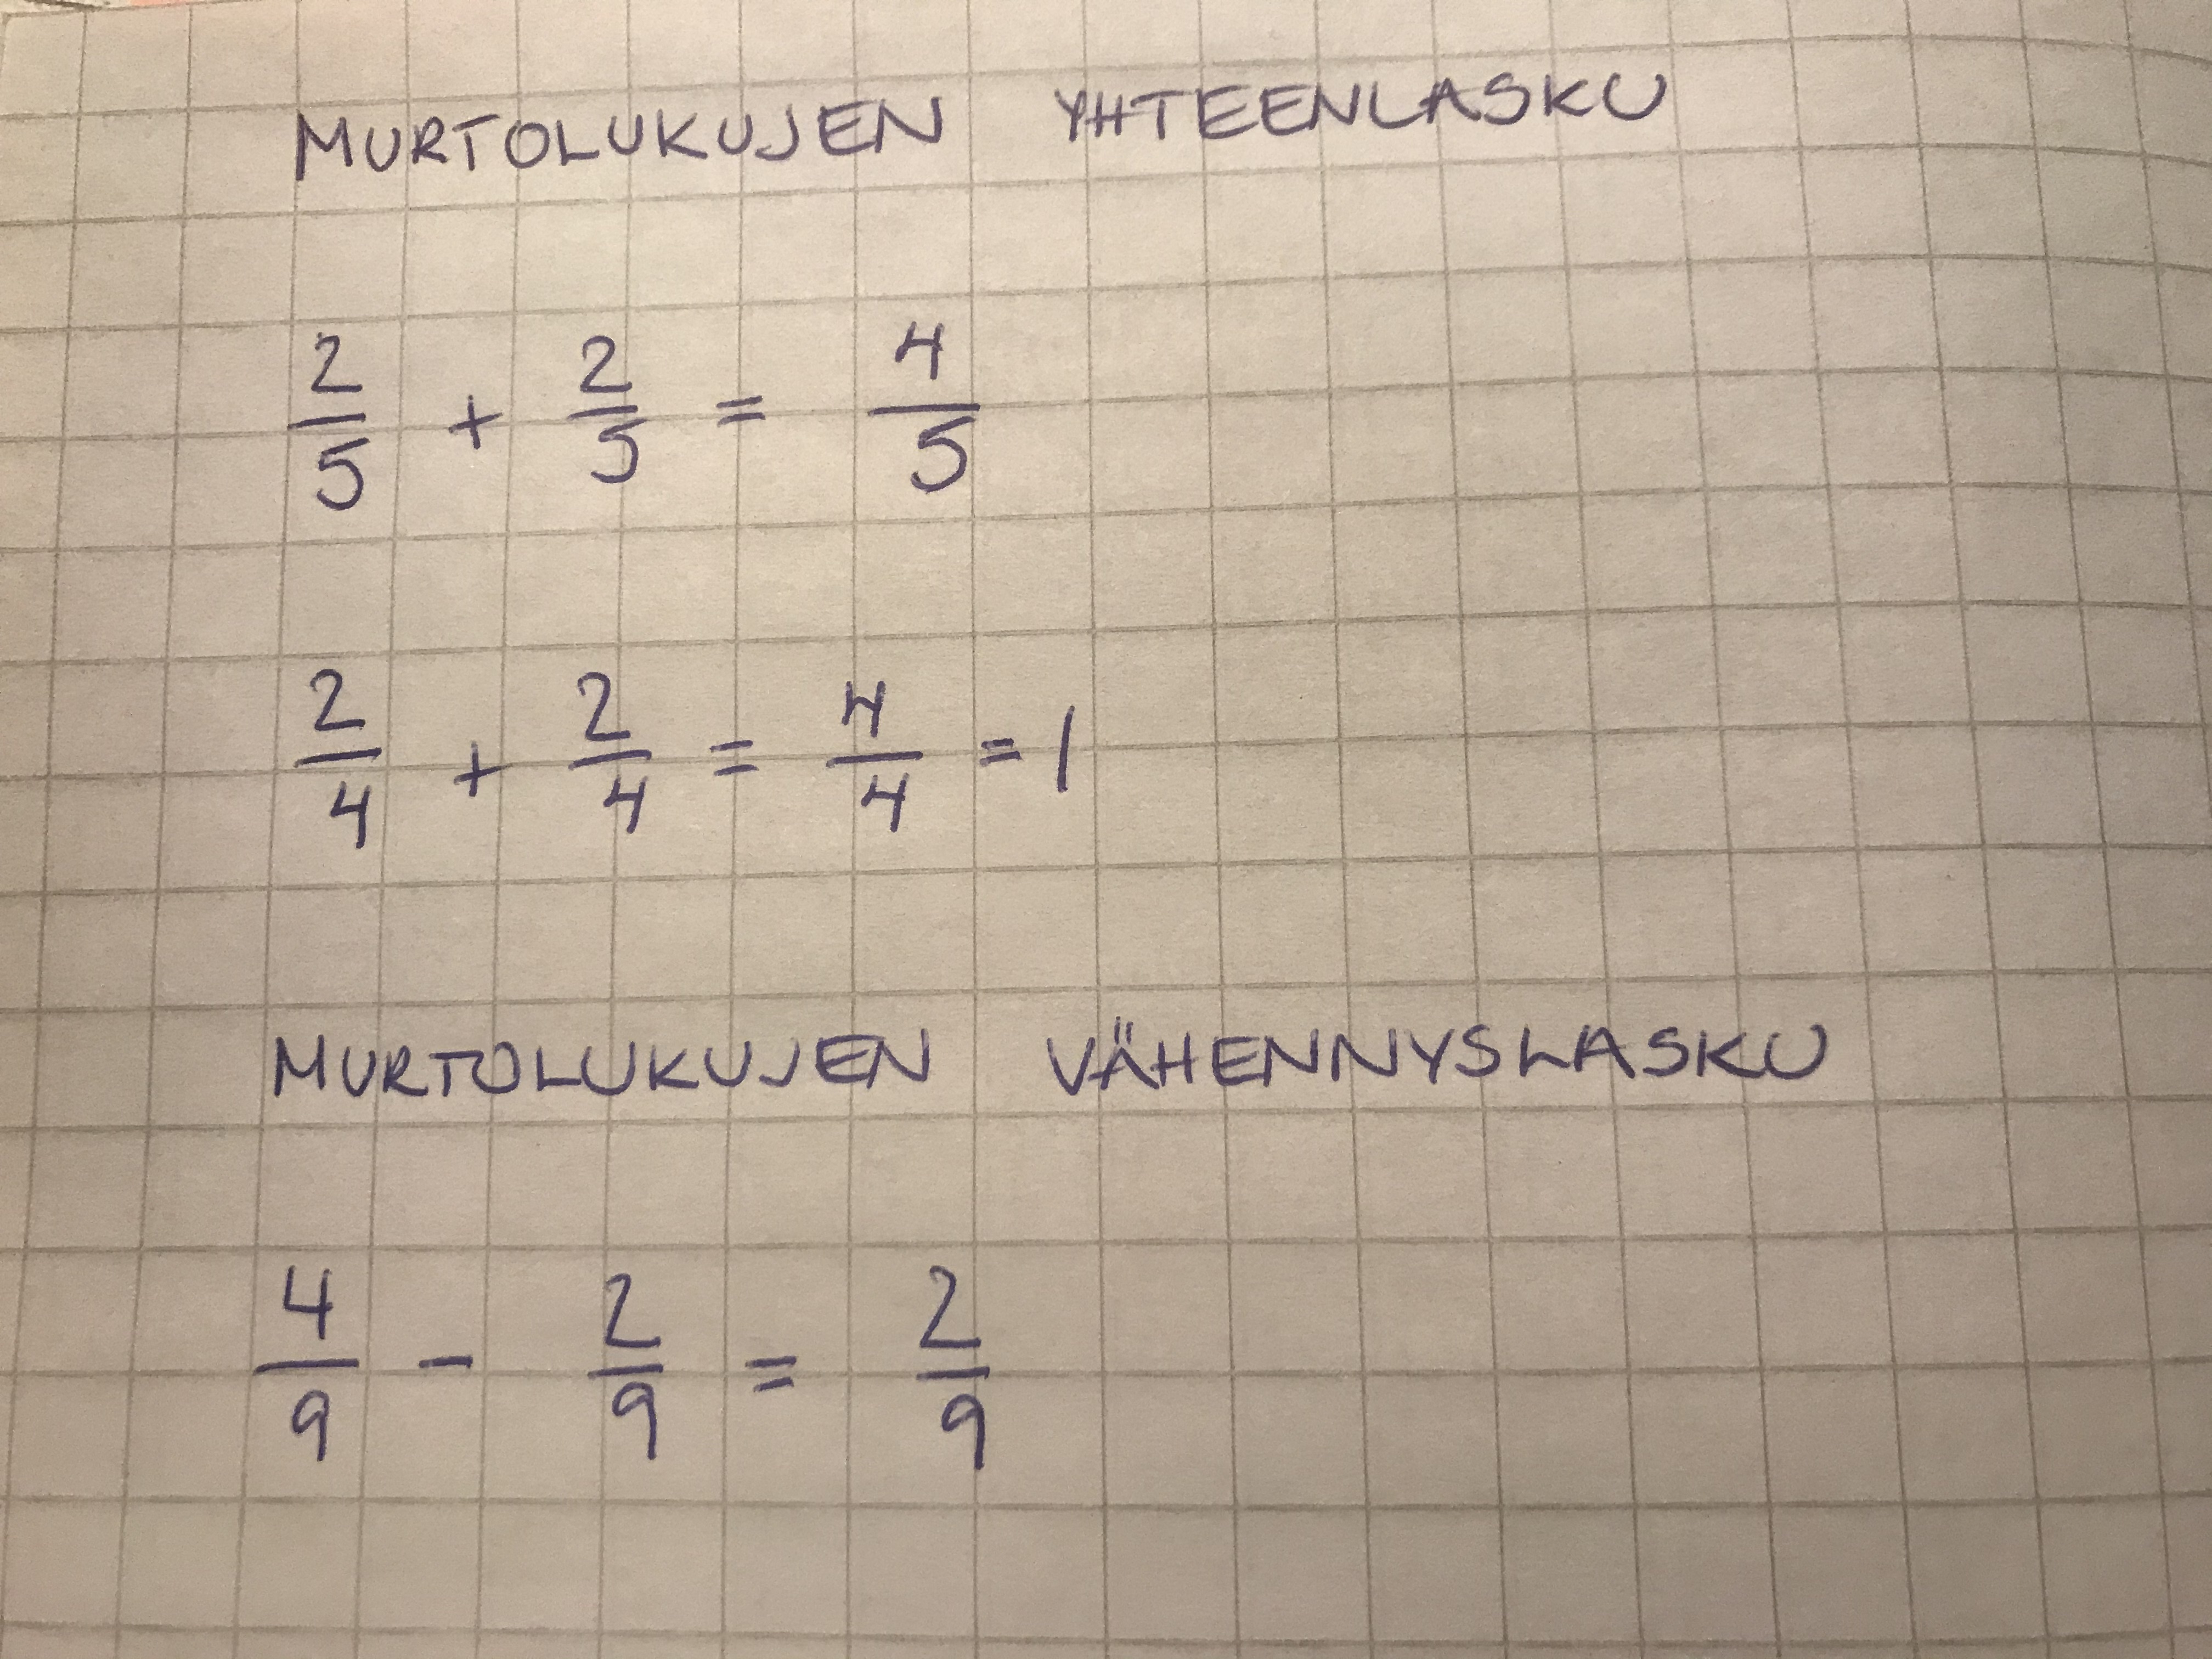 MURTOLUKUJEN YHTEENLASKU
2/5 + 2/5 = 4/5
2/4 + 2/4 = 4/4 = 1
MURTOLUKUJEN VÄHENNYSLASKU
4/9 - 2/9 = 2/9